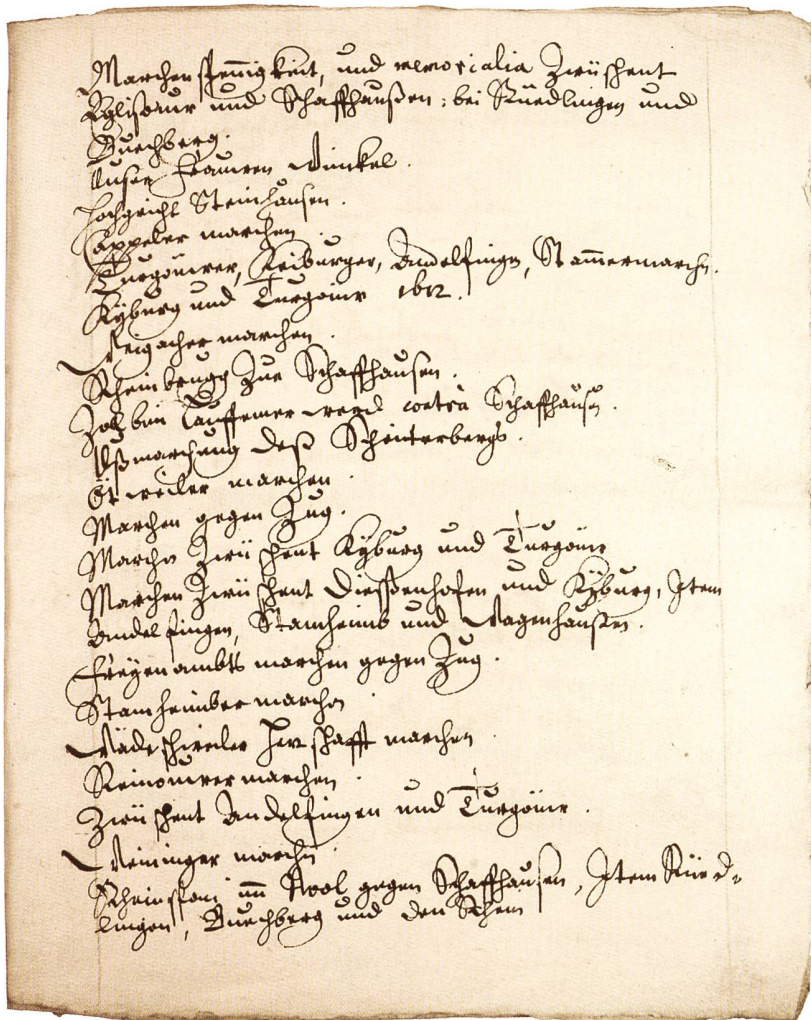 Marchen spennigkeit, und memorialia Zwüschent
Eglisouw und Schaffhaußen: bei Rüedlingen und
Buechberg.
Unser Frauwen Winkel.
Hochgricht Steinhausen.
Cappeler marchen.
Turgöuwer, Kriburger, Andelfingen, Stammermarchen.
Kyburg und Turgöuw 1612.
Weiacher marchen.
Rheinbrugg Zue Schaffhausen.
Zoll bim Lauffemer werd contra Schaffhausen.
Ußmarchung deß Schinterbergs.
Ötweiler marchen.
Marchen gegen Zug.
Marchen Zwüschent Kyburg und Turgöuw
Marchen Zwüschent Diessenhofen und Kyburg, Item
Andelfingen, Stamheimb und Wagenhaußen.
Freyen ambts marchen gegen Zug.
Stamheimber marchen
Wädeschweiler Herschafft marchen.
Rinouwer marchen.
Zwüschent Andelfingen und Turgöuw.
Weininger marchen.
Rheinstrom im Rool gegen Schaffhausen, Item Rüed-
lingen, Buechberg und den Rhein